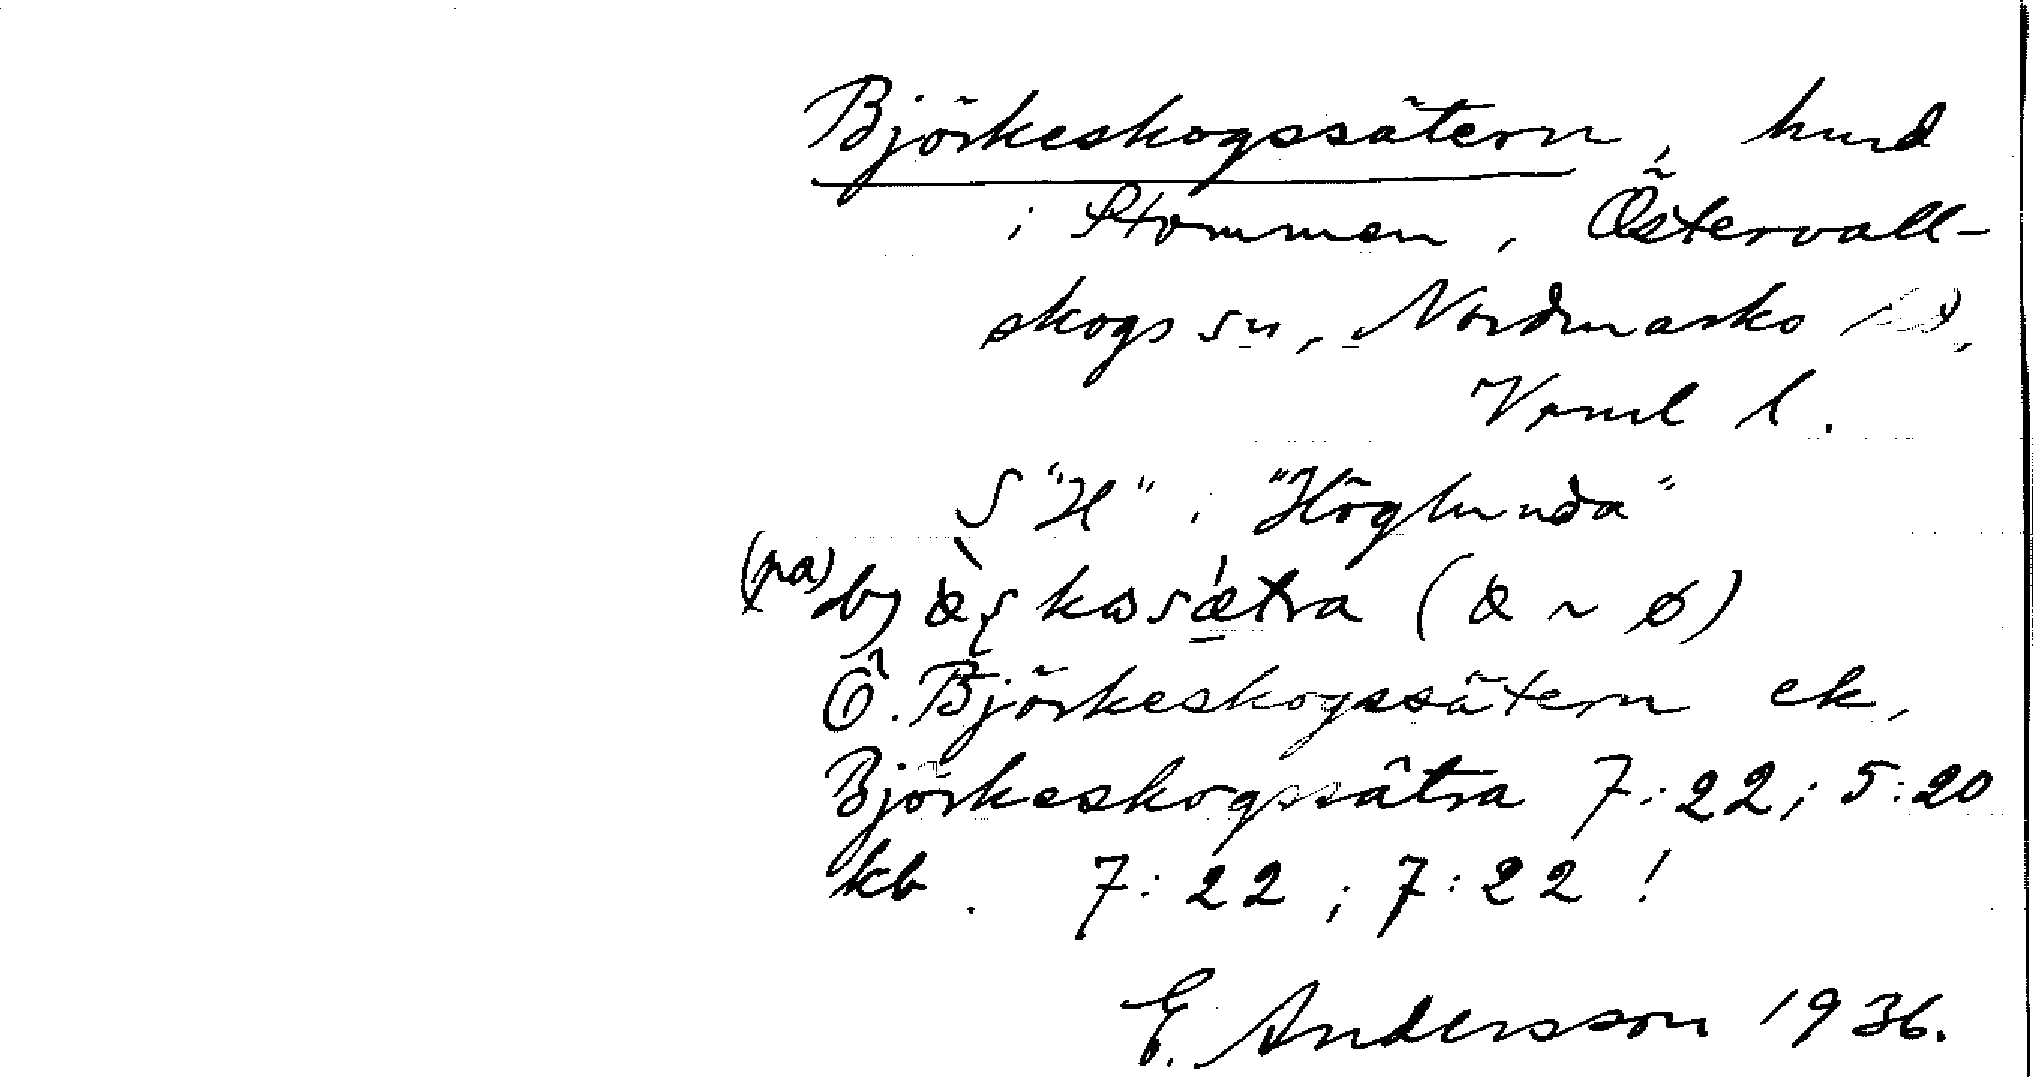 Björkeskogssätern, hmd
i Stommen, Östervall-
skogs sn, Nordmarks hd,
Vrml l.
S "H" i "Höglunda"
(på) bjɶ̀ʂkɷsǽtra (ɶ ~ ø)
Ö. Björkeskogssätern ek,
Björkeskogssätra 7:22; 5:20
kb. 7:22; 7:22!
E. Andersson 1936.